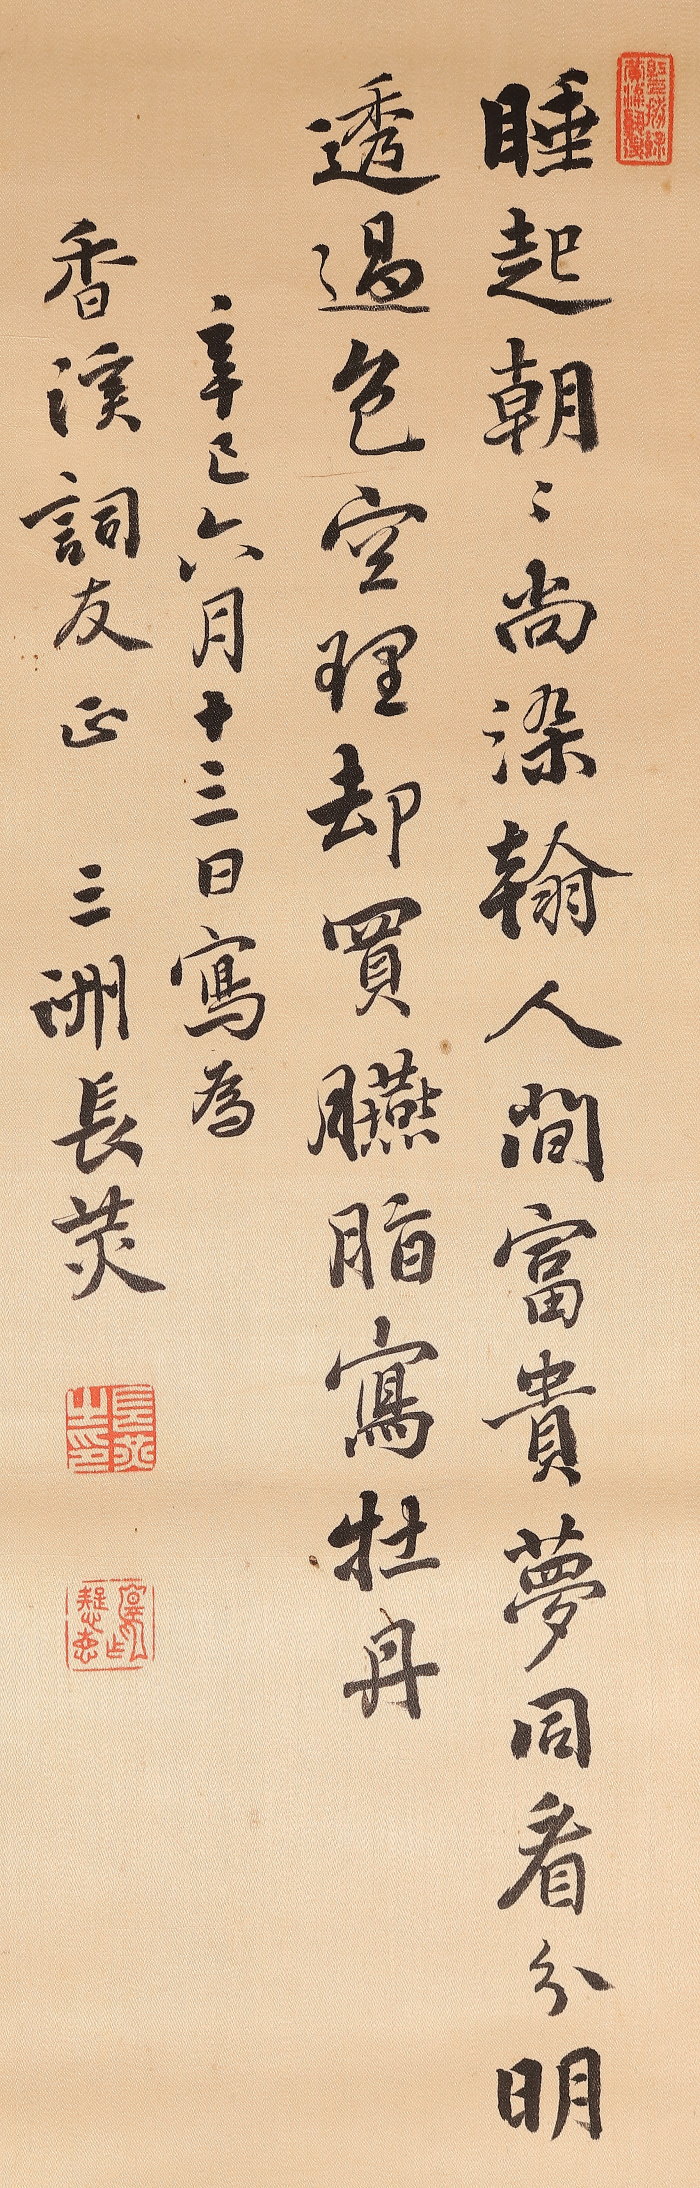 睡起朝〻尚染翰人間富貴夢同看分明
透過色空理却買臙脂寫牡丹
辛巳六月十三日寫為
香溪詞友正 三洲長炗
長炗之印